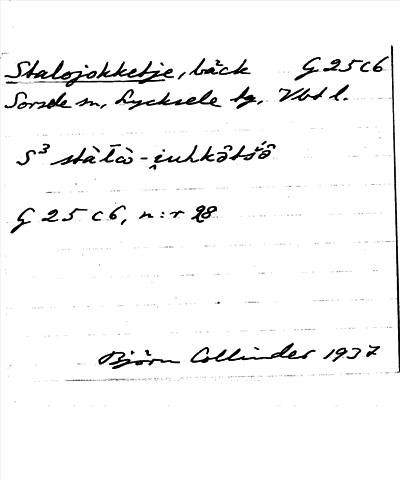 Stalojokketje, bäck G 25 c 6
Sorsele sn, Lycksele tg, Vbt l.
S³
G 25 c 6, n:r 28
Björn Collinder 1937